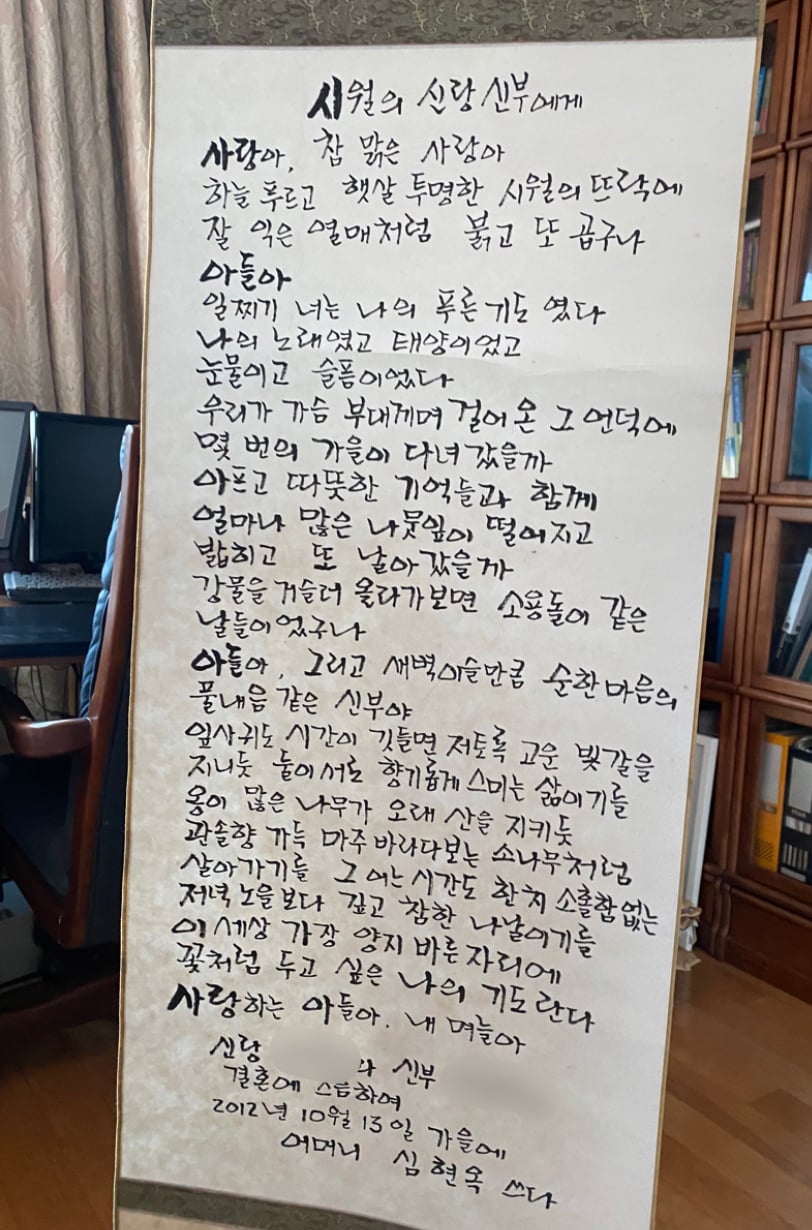 시월의 신랑 신부에게
사랑아, 참 맑은 사랑아
하늘 푸르고 햇살 투명한 시월의 뜨락에
잘 익은 열매처럼 붉고 또 곱구나
아들아
일찌기 너는 나의 푸른 기도 였다
나의 노래였고 태양이었고
눈물이고 슬픔이었다
우리가 가슴 부대끼며 걸어 온 그 언덕에
몇 번의 가을이 다녀 갔을까
아프고 따뜻한 기억들과 함께
얼마나 많은 나뭇잎이 떨어지고
밟히고 또 날아 갔을까
강물을 거슬러 올라가보면 소용돌이 같은
날들이었구나
아들아, 그리고 새벽이슬만큼 순한 마음의
풀내음 같은 신부야
잎사귀도 시간이 깃들면 저토록 고운 빛깔을
지니듯 둘이 서로 향기롭게 스미는 삶이기를
옹이 많은 나무가 오래 산을 지키듯
관솔향 가득 마주 바라다보는 소나무처럼
살아가기를 그 어느 시간도 한치 소홀함 없는
저녁 노을 보다 깊고 참한 나날이기를
이 세상 가장 양지 바른 자리에
꽃처럼 두고 싶은 나의 기도란다
사랑하는 아들아, 내 며늘아
신랑 과 신부
결혼에 즈음하여
2012년 10월 13일 가을에
어머니 심현옥 쓰다